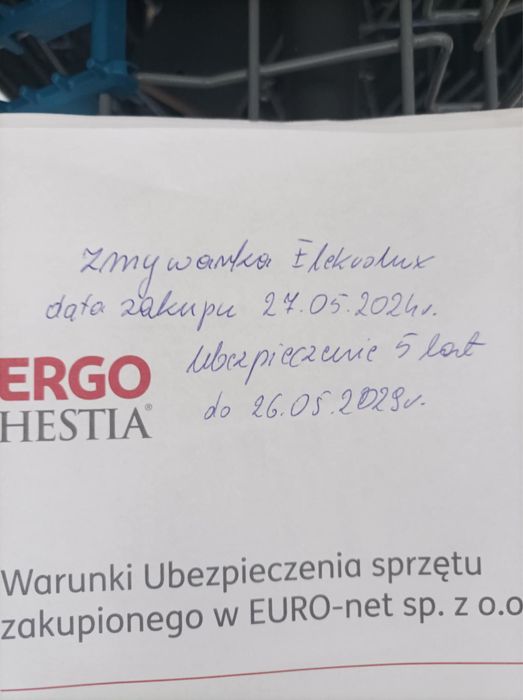 Zmywarka Elekrolux
data zakupu 27.05.2024r.
Ubezpieczenie 5 lat
do 26.05.2029r.
ERGO
HESTIA®
Warunki Ubezpieczenia sprzętu
zakupionego w EURO-net sp. z o.o